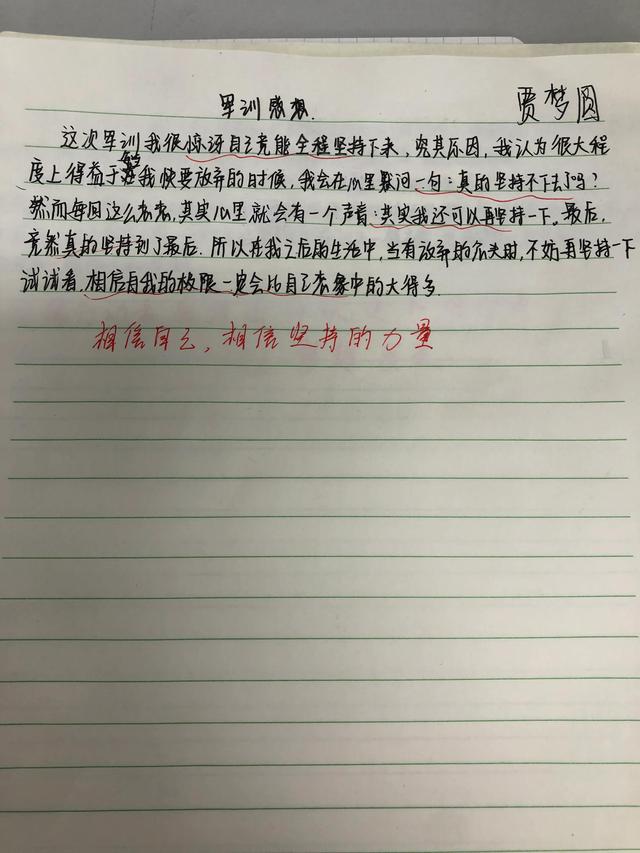 军训感想.
贾梦圆
这次军训我很惊讶自己竟能全程坚持下来，究其原因，我认为很大程
度上得益于每当我快要放弃的时候，我会在心里疑问一句：真的坚持不下去了吗？
然而每回这么想想，其实心里就会有一个声音：其实我还可以再坚持一下。最后，
竟然真的坚持到了最后。所以在我之后的生活中，当有放弃的念头时，不妨再坚持一下
试试看，相信自我的极限一定会比自己想象中的大得多.
相信自己，相信坚持的力量